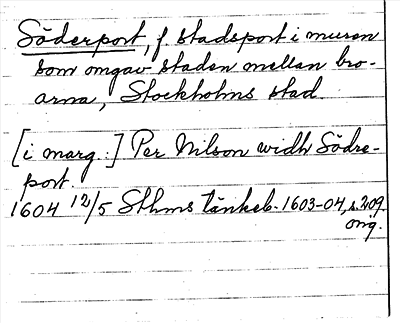 Söderport, f. stadsport i muren
som omgav staden mellan bro-
arna, Stockholms stad.
[i marg.:] Per Nilson widh Södre-
port.
1604 12/5 Sthms tänkeb. 1603-04, s. 209.
orig.